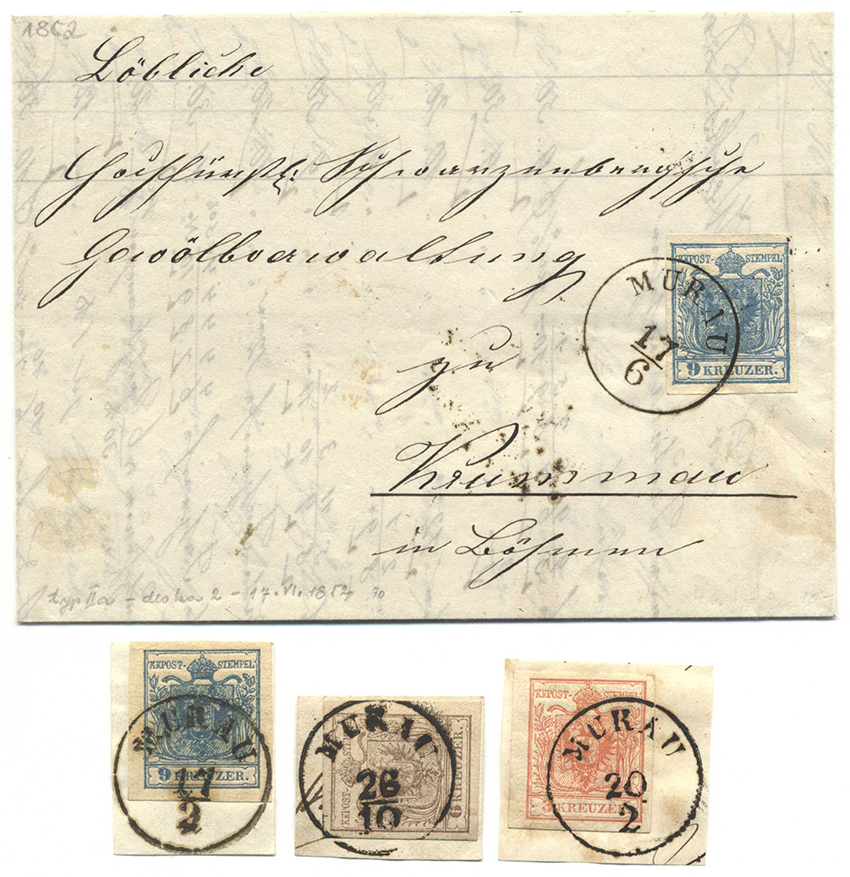 1852
Löbliche
Hochfürstl: Schwarzenberg'sche
Gewölbverwaltung
zu
Krummau
in Böhmen
KKPOST-STEMPEL
9 KREUZER.
MURAU
17
6
typ IIa - deska 2 - 17. VI. 1852
KKPOST-STEMPEL
9 KREUZER.
MURAU
17
2
KKPOST-STEMPEL
6 KREUZER.
MURAU
26
10
KKPOST-STEMPEL
3 KREUZER.
MURAU
20
2